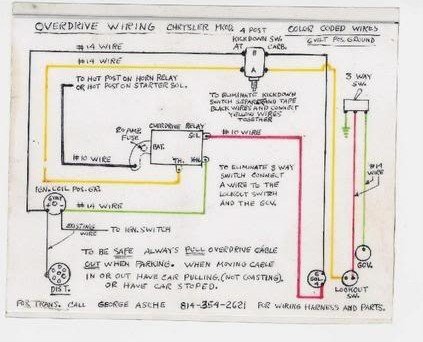 OVERDRIVE WIRING CHRYSLER MCO. 4 POST KICKDOWN SW. AT CARB.
COLOR CODED WIRES
6 VOLT POS. GROUND
#14 WIRE
#14 WIRE
B
A
3 WAY SW.
TO HOT POST ON HORN RELAY
OR HOT POST ON STARTER SOL.
TO ELIMINATE KICKDOWN
SWITCH SEPARATE AND TAPE
BLACK WIRES AND CONNECT
YELLOW WIRES
TOGETHER
20 AMP
FUSE
OVERDRIVE RELAY
SOL
BAT.
TH.
IGN.
#10 WIRE
#10 WIRE
TO ELIMINATE 3 WAY
SWITCH CONNECT
A WIRE TO THE
LOCKOUT SWITCH
AND THE GOV.
#14
WIRE
IGN. COIL POS. GR.
#14 WIRE
EXISTING
WIRE
TO IGN. SWITCH
DIST.
TO BE SAFE ALWAYS PULL OVERDRIVE CABLE
OUT WHEN PARKING. WHEN MOVING CABLE
IN OR OUT HAVE CAR PULLING, (NOT COASTING).
OR HAVE CAR STOPED.
6
SOL
4
LOCKOUT
SW.
GOV.
FOR TRANS. CALL GEORGE ASCHE 814-354-2621 FOR WIRING HARNESS AND PARTS.